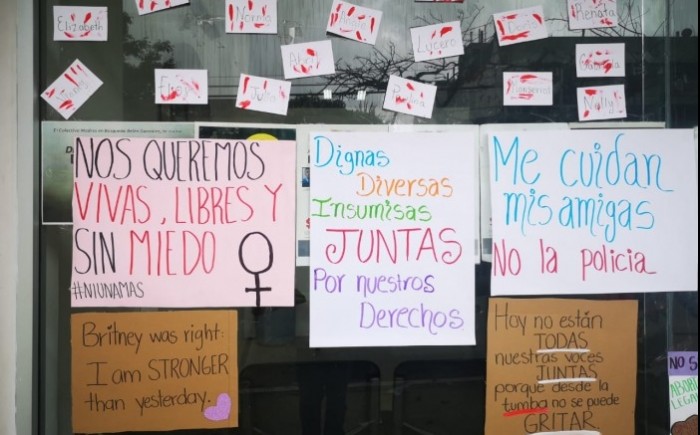 Elizabeth
Norma
Lucero
Renata
NOS QUEREMOS
VIVAS, LIBRES Y
SIN MIEDO
#NIUNAMAS
Dignas
Diversas
Insumisas
JUNTAS
Por nuestros
Derechos
Me cuidan
mis amigas
No la policia
Britney was right:
I am STRONGER
than yesterday.
Hoy no están
TODAS
nuestras voces
JUNTAS
porque desde la
tumba no se puede
GRITAR
NO S
ABOR
LEGA